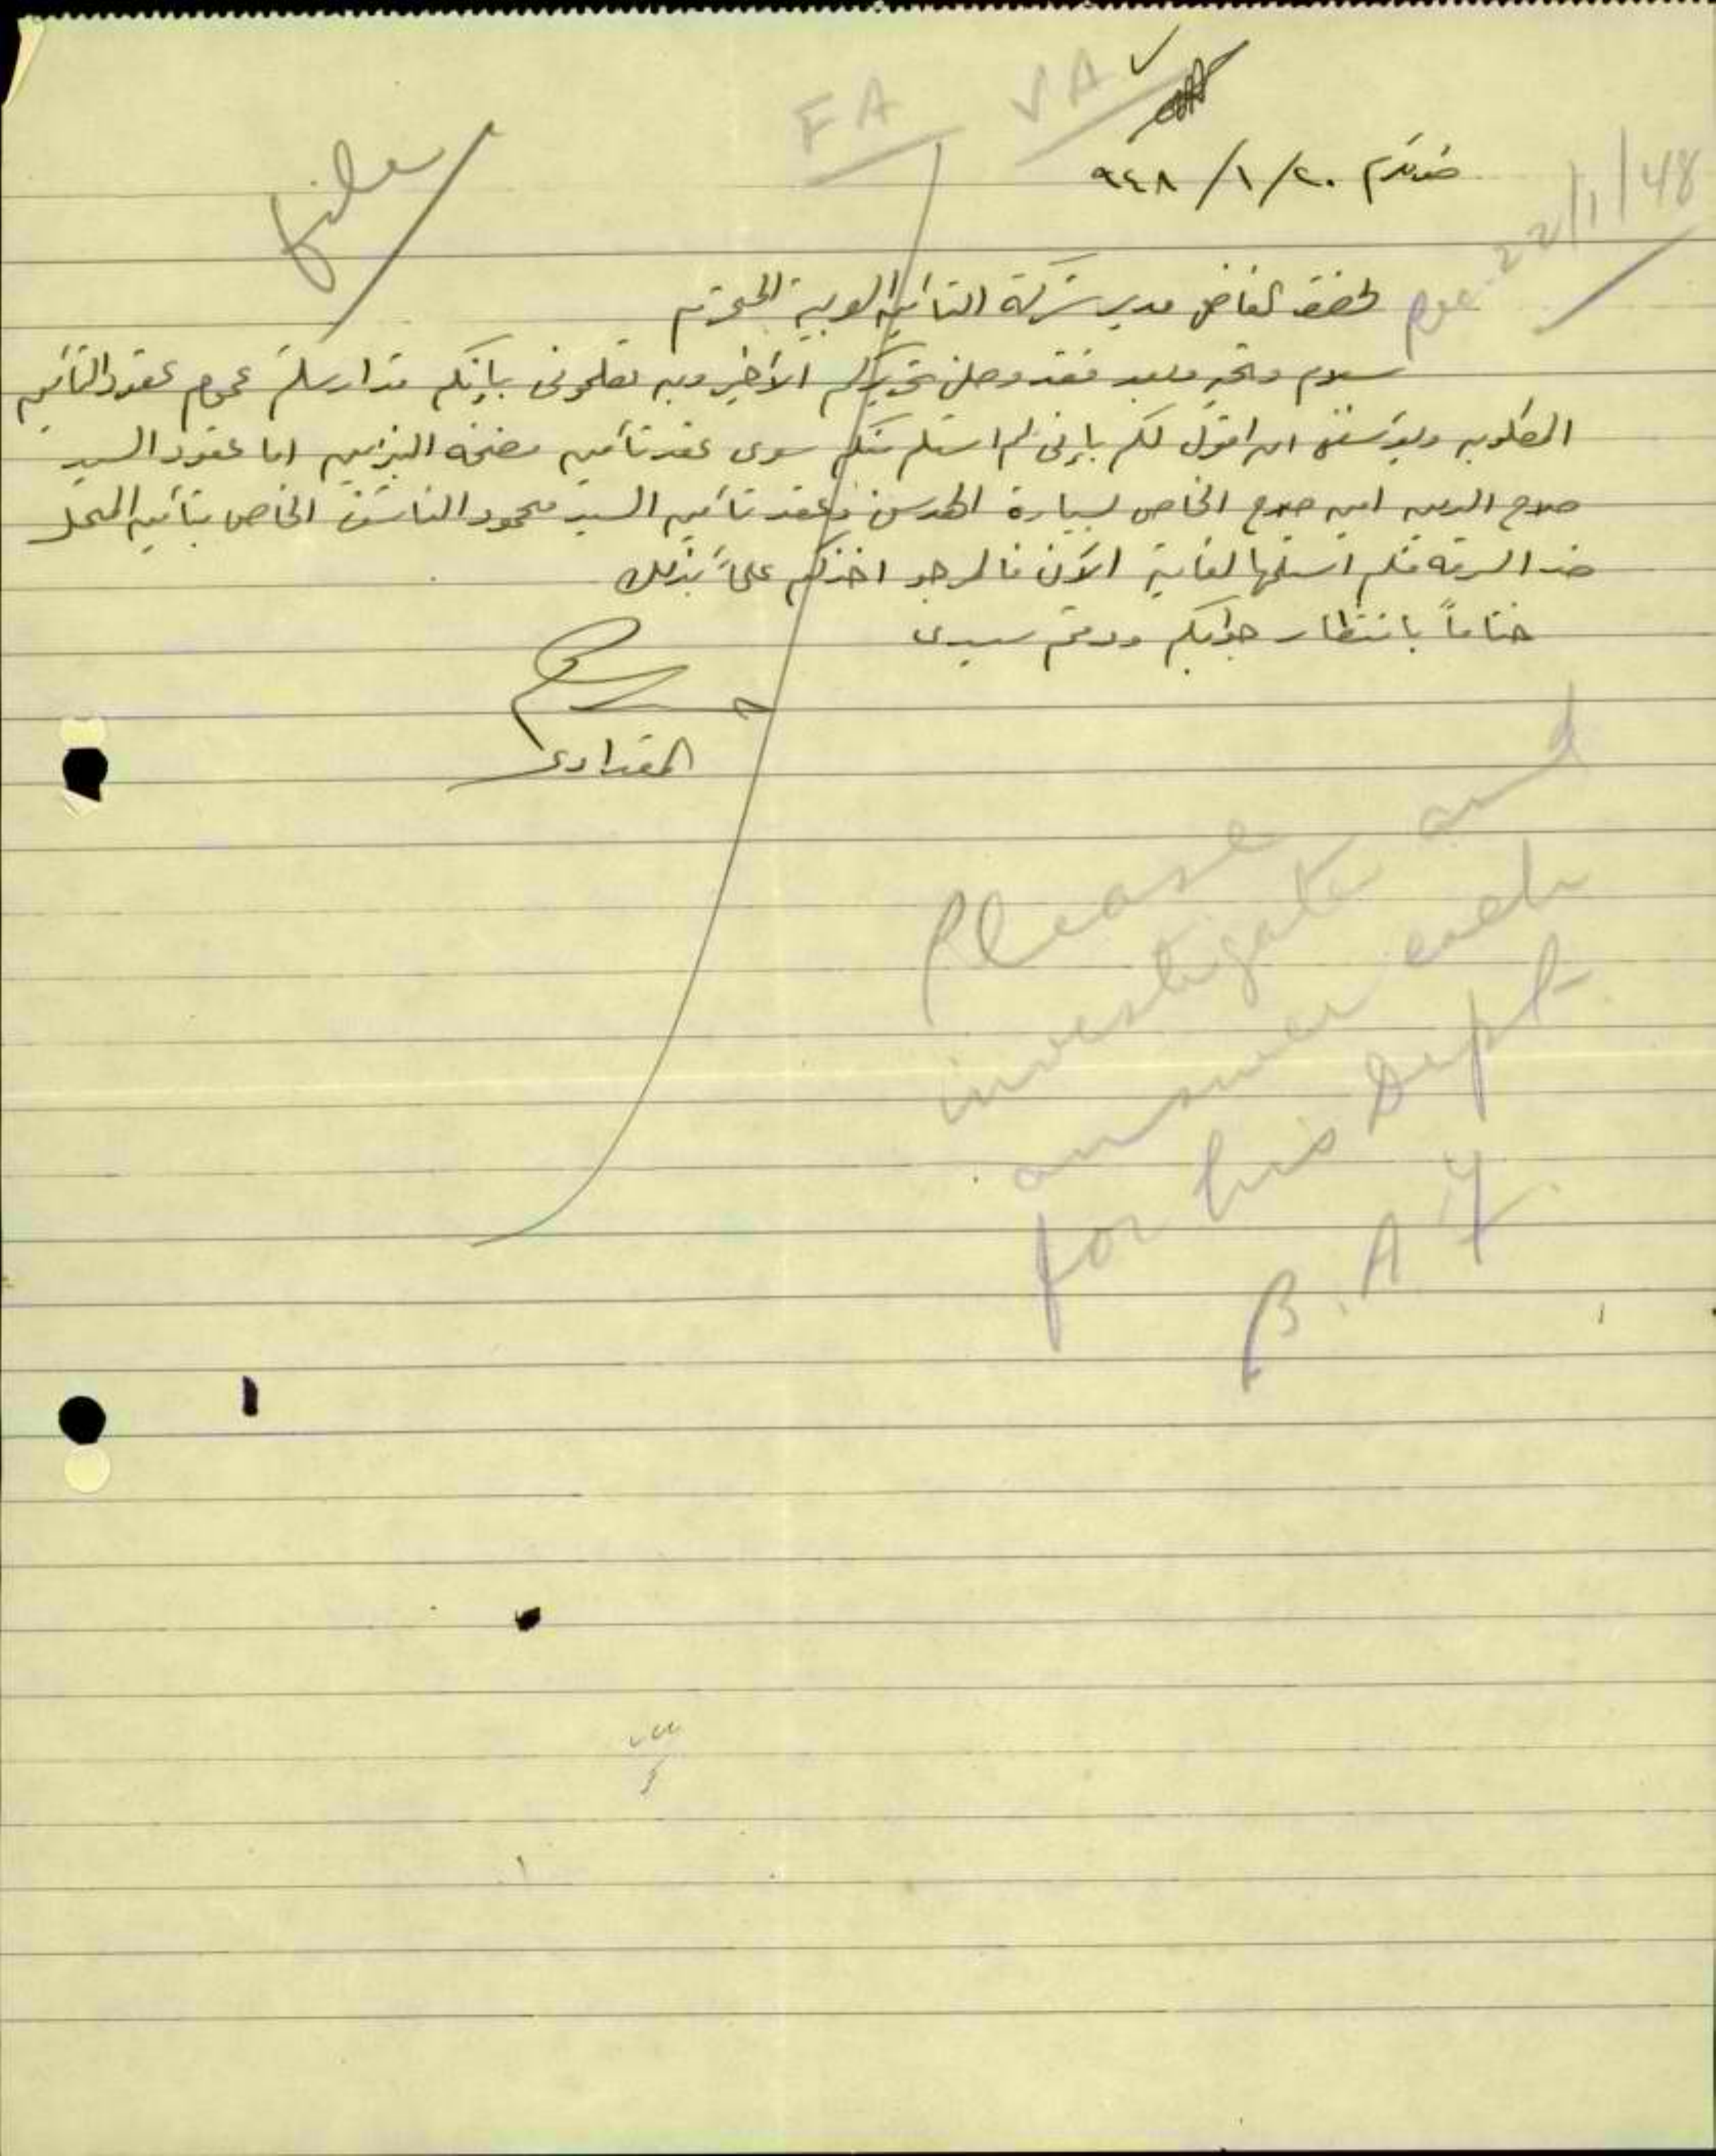 FA VA
file
طولكرم ٢٠/١/٩٤٨
Rec. 22/1/48
لحضرة الفاضل مدير شركة التأمين العربية المحترم
سلام وتحية وبعد فقد وصلني تحريركم الأخير وبه تعلموني بانكم قد ارسلتم عموم عقود التأمين
المطلوبه ويؤسفني ان اقول لكم بإني لم استلم منكم سوى عقد تأمين مضخة البنزين اما عقود السيد
صلاح الدين امين صلاح الخاص لسيارة الهدسن وعقد تأمين السيد محمود الناشف الخاص بتأمين المحل
ضد السرقه فلم استلمها لغاية الآن فالمرجو اخذكم علماً بذلك
ختاماً بانتظار جوابكم ودمتم سيدي
المقدادي
Please and
investigate
answer each
for his Dept
B.A.Y.